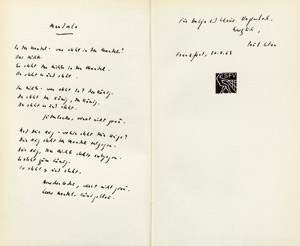 Mandorla
In der Mandel – was steht in der Mandel?
Das Nichts.
Es steht das Nichts in der Mandel.
Da steht es und steht.
Im Nichts – wer steht da? Der König.
Da steht der König, der König.
Da steht er und steht.
Judenlocke, wirst nicht grau.
Und dein Aug – wohin steht dein Auge?
Dein Aug steht der Mandel entgegen.
Dein Aug, dem Nichts stehts entgegen.
Es steht zum König.
So steht es und steht.
Menschenlocke, wirst nicht grau.
Leere Mandel, königsblau.
Für und Klaus Wagenbach,
herzlich,
Paul Celan
Frankfurt,